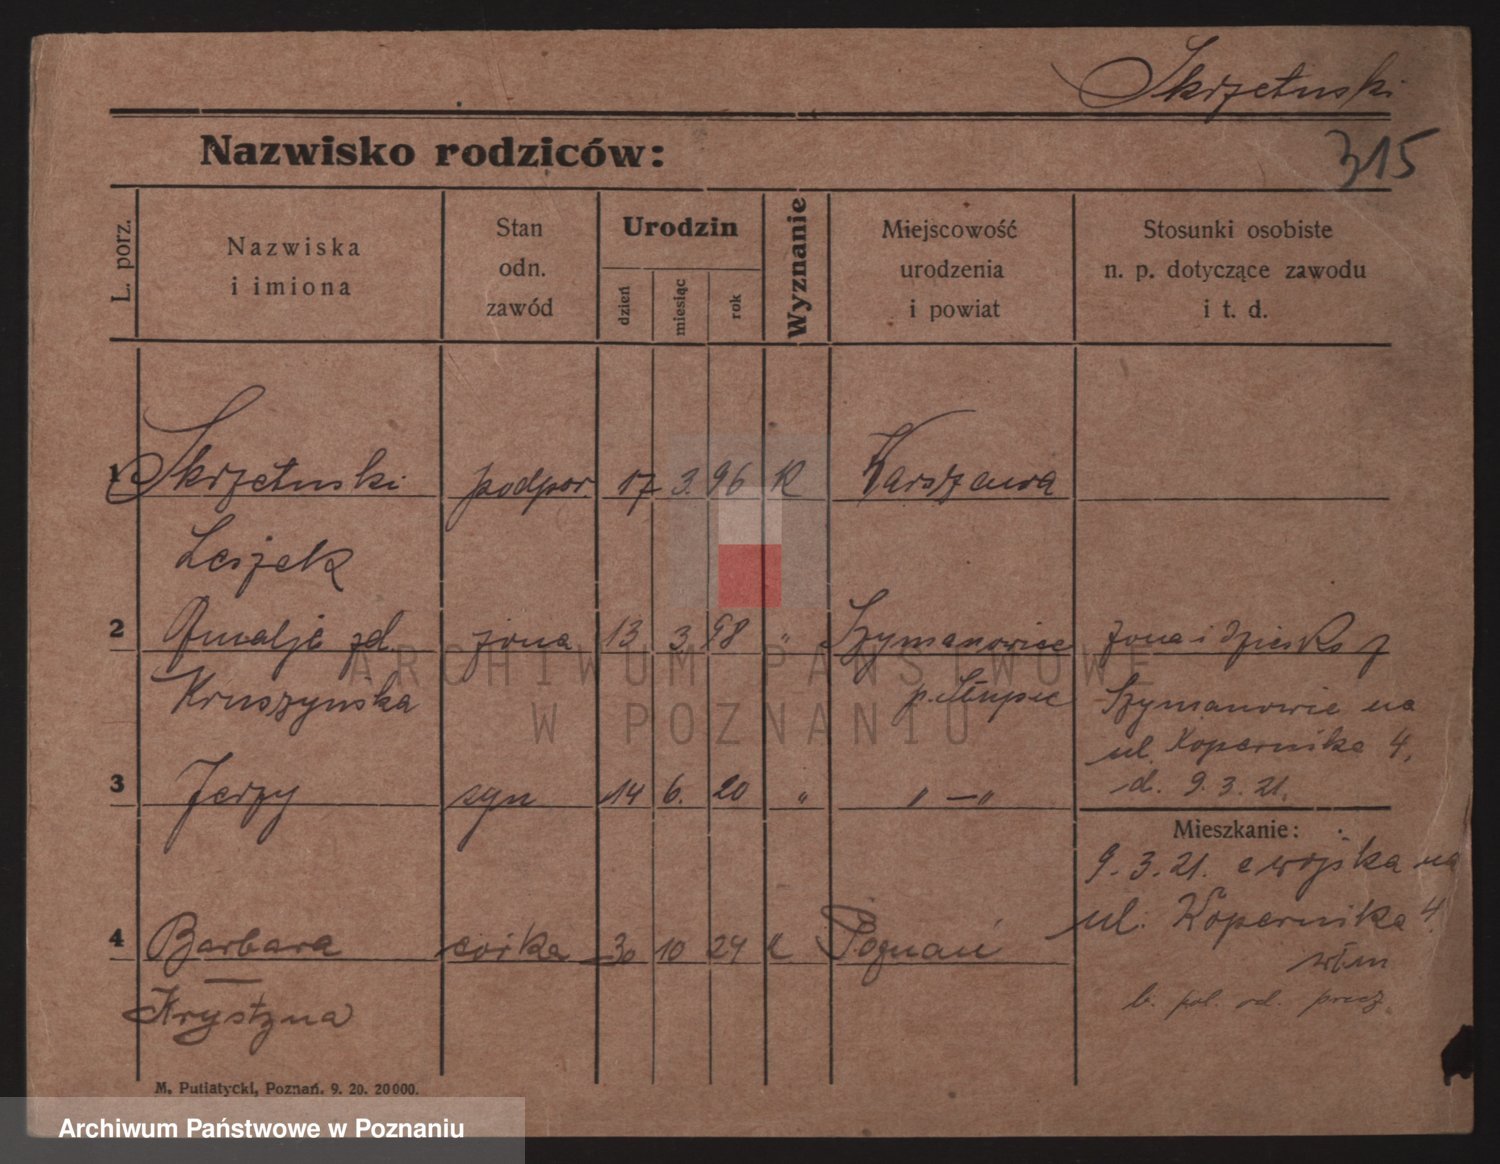 Skrzetuski
Nazwisko rodziców:
315
L. porz.
Nazwiska
i imiona
Stan
odn.
zawód
Urodzin
dzień
miesiąc
rok
Wyznanie
Miejscowość
urodzenia
i powiat
Stosunki osobiste
n. p. dotyczące zawodu
i t. d.
1 Skrzetuski podpor. 17 3. 96 K Warszawa
Leszek
2 Amalja zd. żona 13 3. 98 " Szymanowice żona i dziecko z
Kruszyńska p. Słupce Szymanowic na
ul. Kopernika 4.
d. 9. 3. 21.
3 Jerzy syn 14 6. 20 " " — "
Mieszkanie:
9. 3. 21. z wojska na
ul. Kopernika 4
4 Barbara córka 30 10 24 K Poznań
Krystyna
M. Putiatycki, Poznań. 9. 20. 20 000.
ARCHIWUM PAŃSTWOWE
W POZNANIU
Archiwum Państwowe w Poznaniu